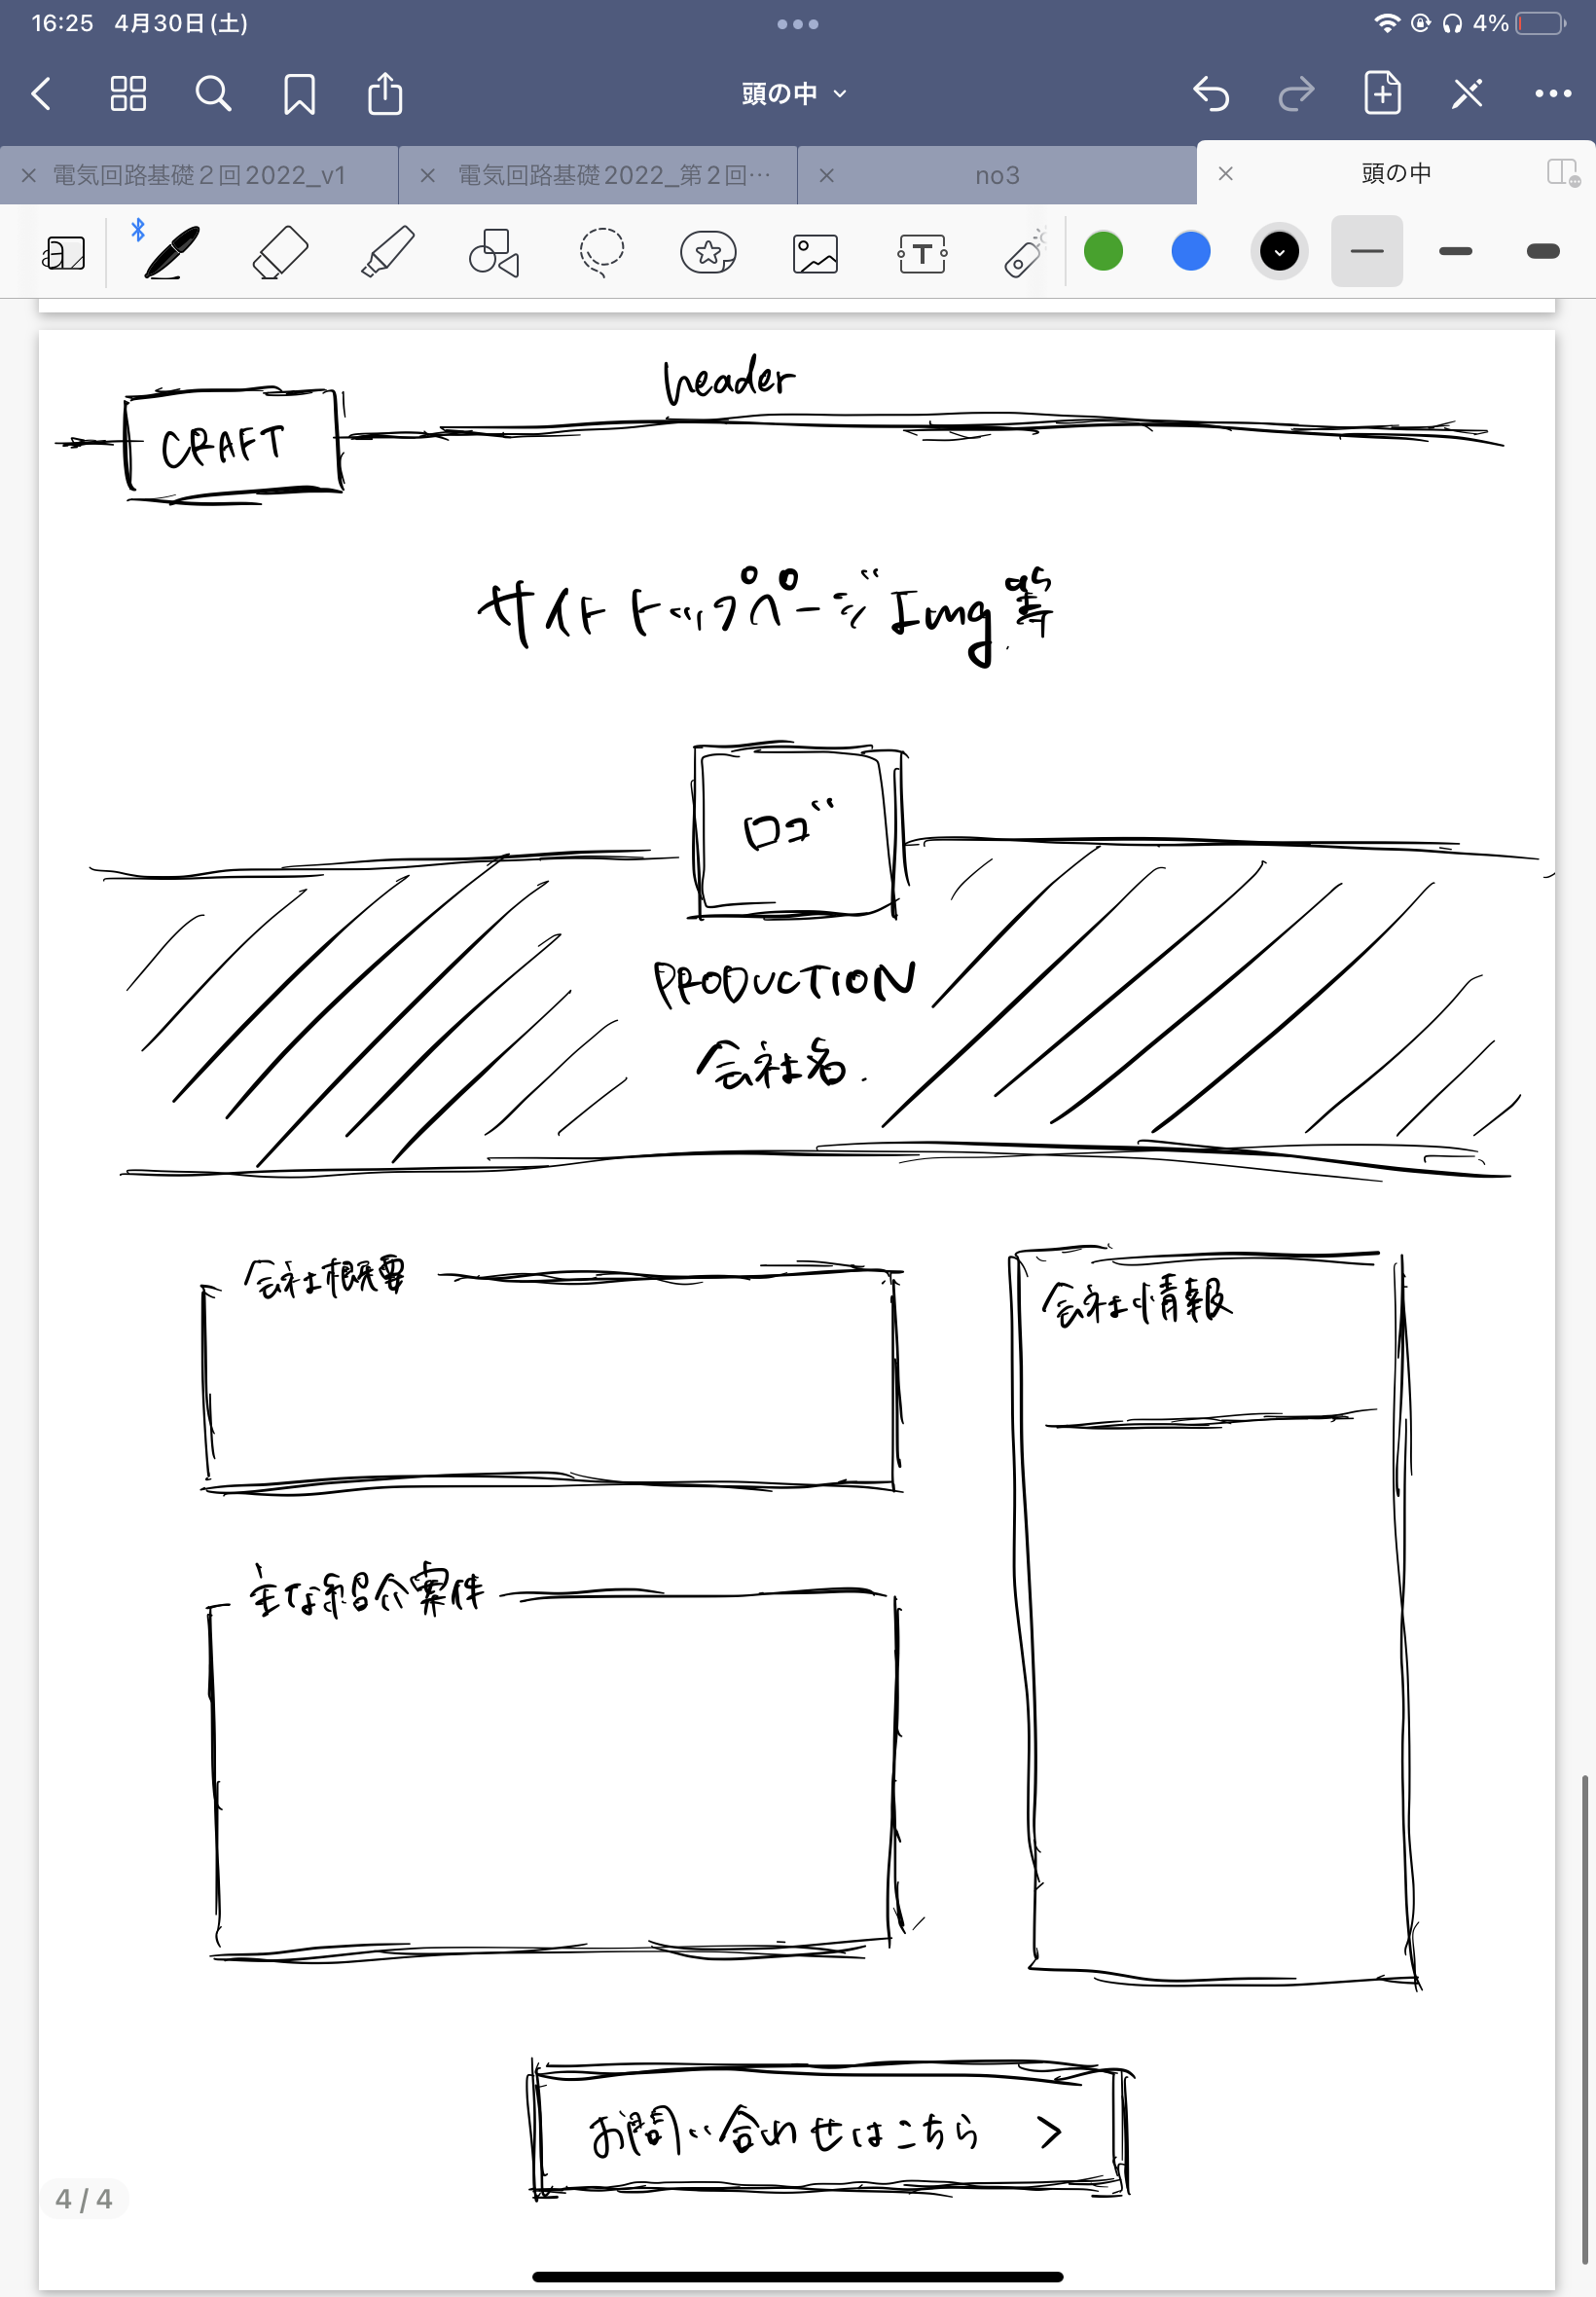 16:25 4月30日(土)
4%
頭の中
電気回路基礎2回2022_v1
電気回路基礎2022_第2回…
no3
頭の中
T
header
CRAFT
サイトトップページImg等
ロゴ
PRODUCTION
会社名.
会社概要
会社情報
主な紹介案件
お問い合わせはこちら >
4 / 4